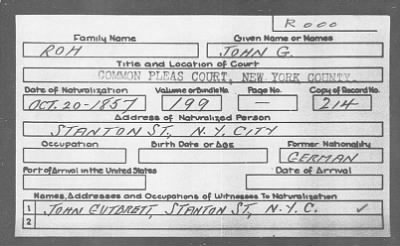 R 000
Family Name Given Name or Names
ROH JOHN G.
Title and Location of Court
COMMON PLEAS COURT, NEW YORK COUNTY.
Date of Naturalization Volume or Bundle No. Page No. Copy of Record No.
OCT. 20-1857 199 — 214
Address of Naturalized Person
STANTON ST., N.Y. CITY
Occupation Birth Date or Age Former Nationality
GERMAN
Port of Arrival in the United States Date of Arrival
Names, Addresses and Occupations of Witnesses To Naturalization
1 JOHN GUTBRETT, STANTON ST., N.Y.C. ✓
2